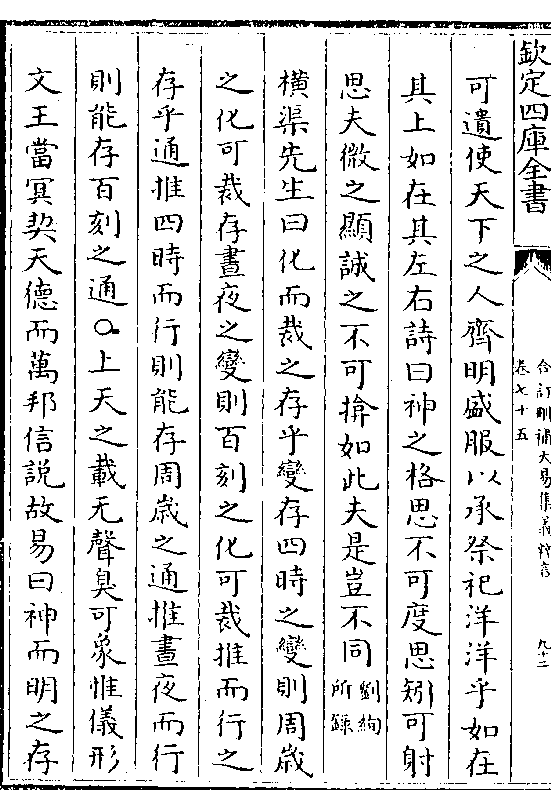 欽定四庫全書
合訂刪補大易集義粹言
卷七十五
九十二
可遺使天下之人齊明盛服以承祭祀洋洋乎如在
其上如在其左右詩曰神之格思不可度思矧可射
思夫微之顯誠之不可揜如此夫是豈不同劉絢所録
橫渠先生曰化而裁之存乎變存四時之變則周歳
之化可裁存晝夜之變則百刻之化可裁推而行之
存乎通推四時而行則能存周歳之通推晝夜而行
則能存百刻之通○上天之載无聲臭可象惟儀形
文王當冥契天德而萬邦信説故易曰神而明之存